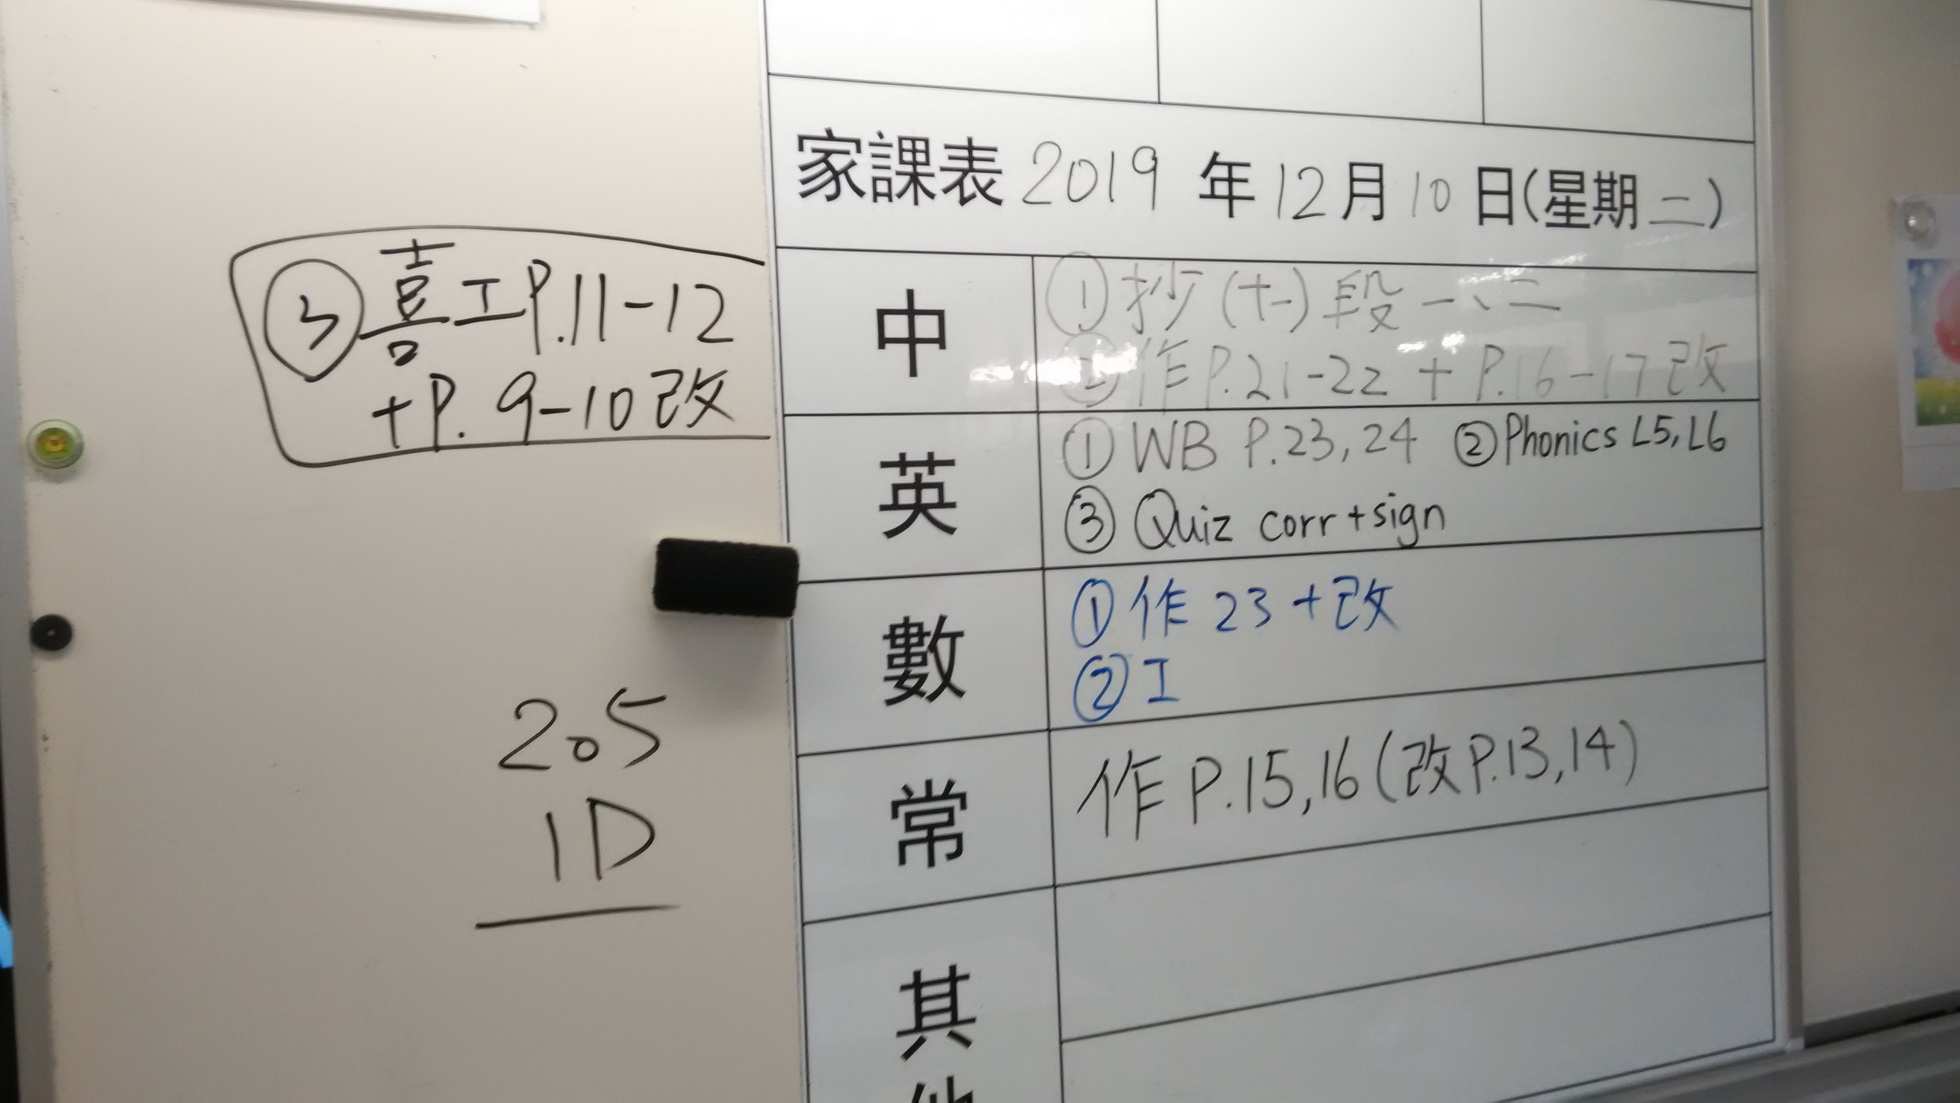 家課表 2019 年 12 月 10 日(星期二)
中
① 抄 (十一) 段 一、二
② 作 P.21-22 + P.16-17 改
③ 喜工 P.11-12
+ P. 9-10 改
英
① WB P.23, 24 ② Phonics L5, L6
③ Quiz corr + sign
數
① 作 23 + 改
② 工
常
作 P.15, 16 (改 P.13, 14)
其
他
205
1D